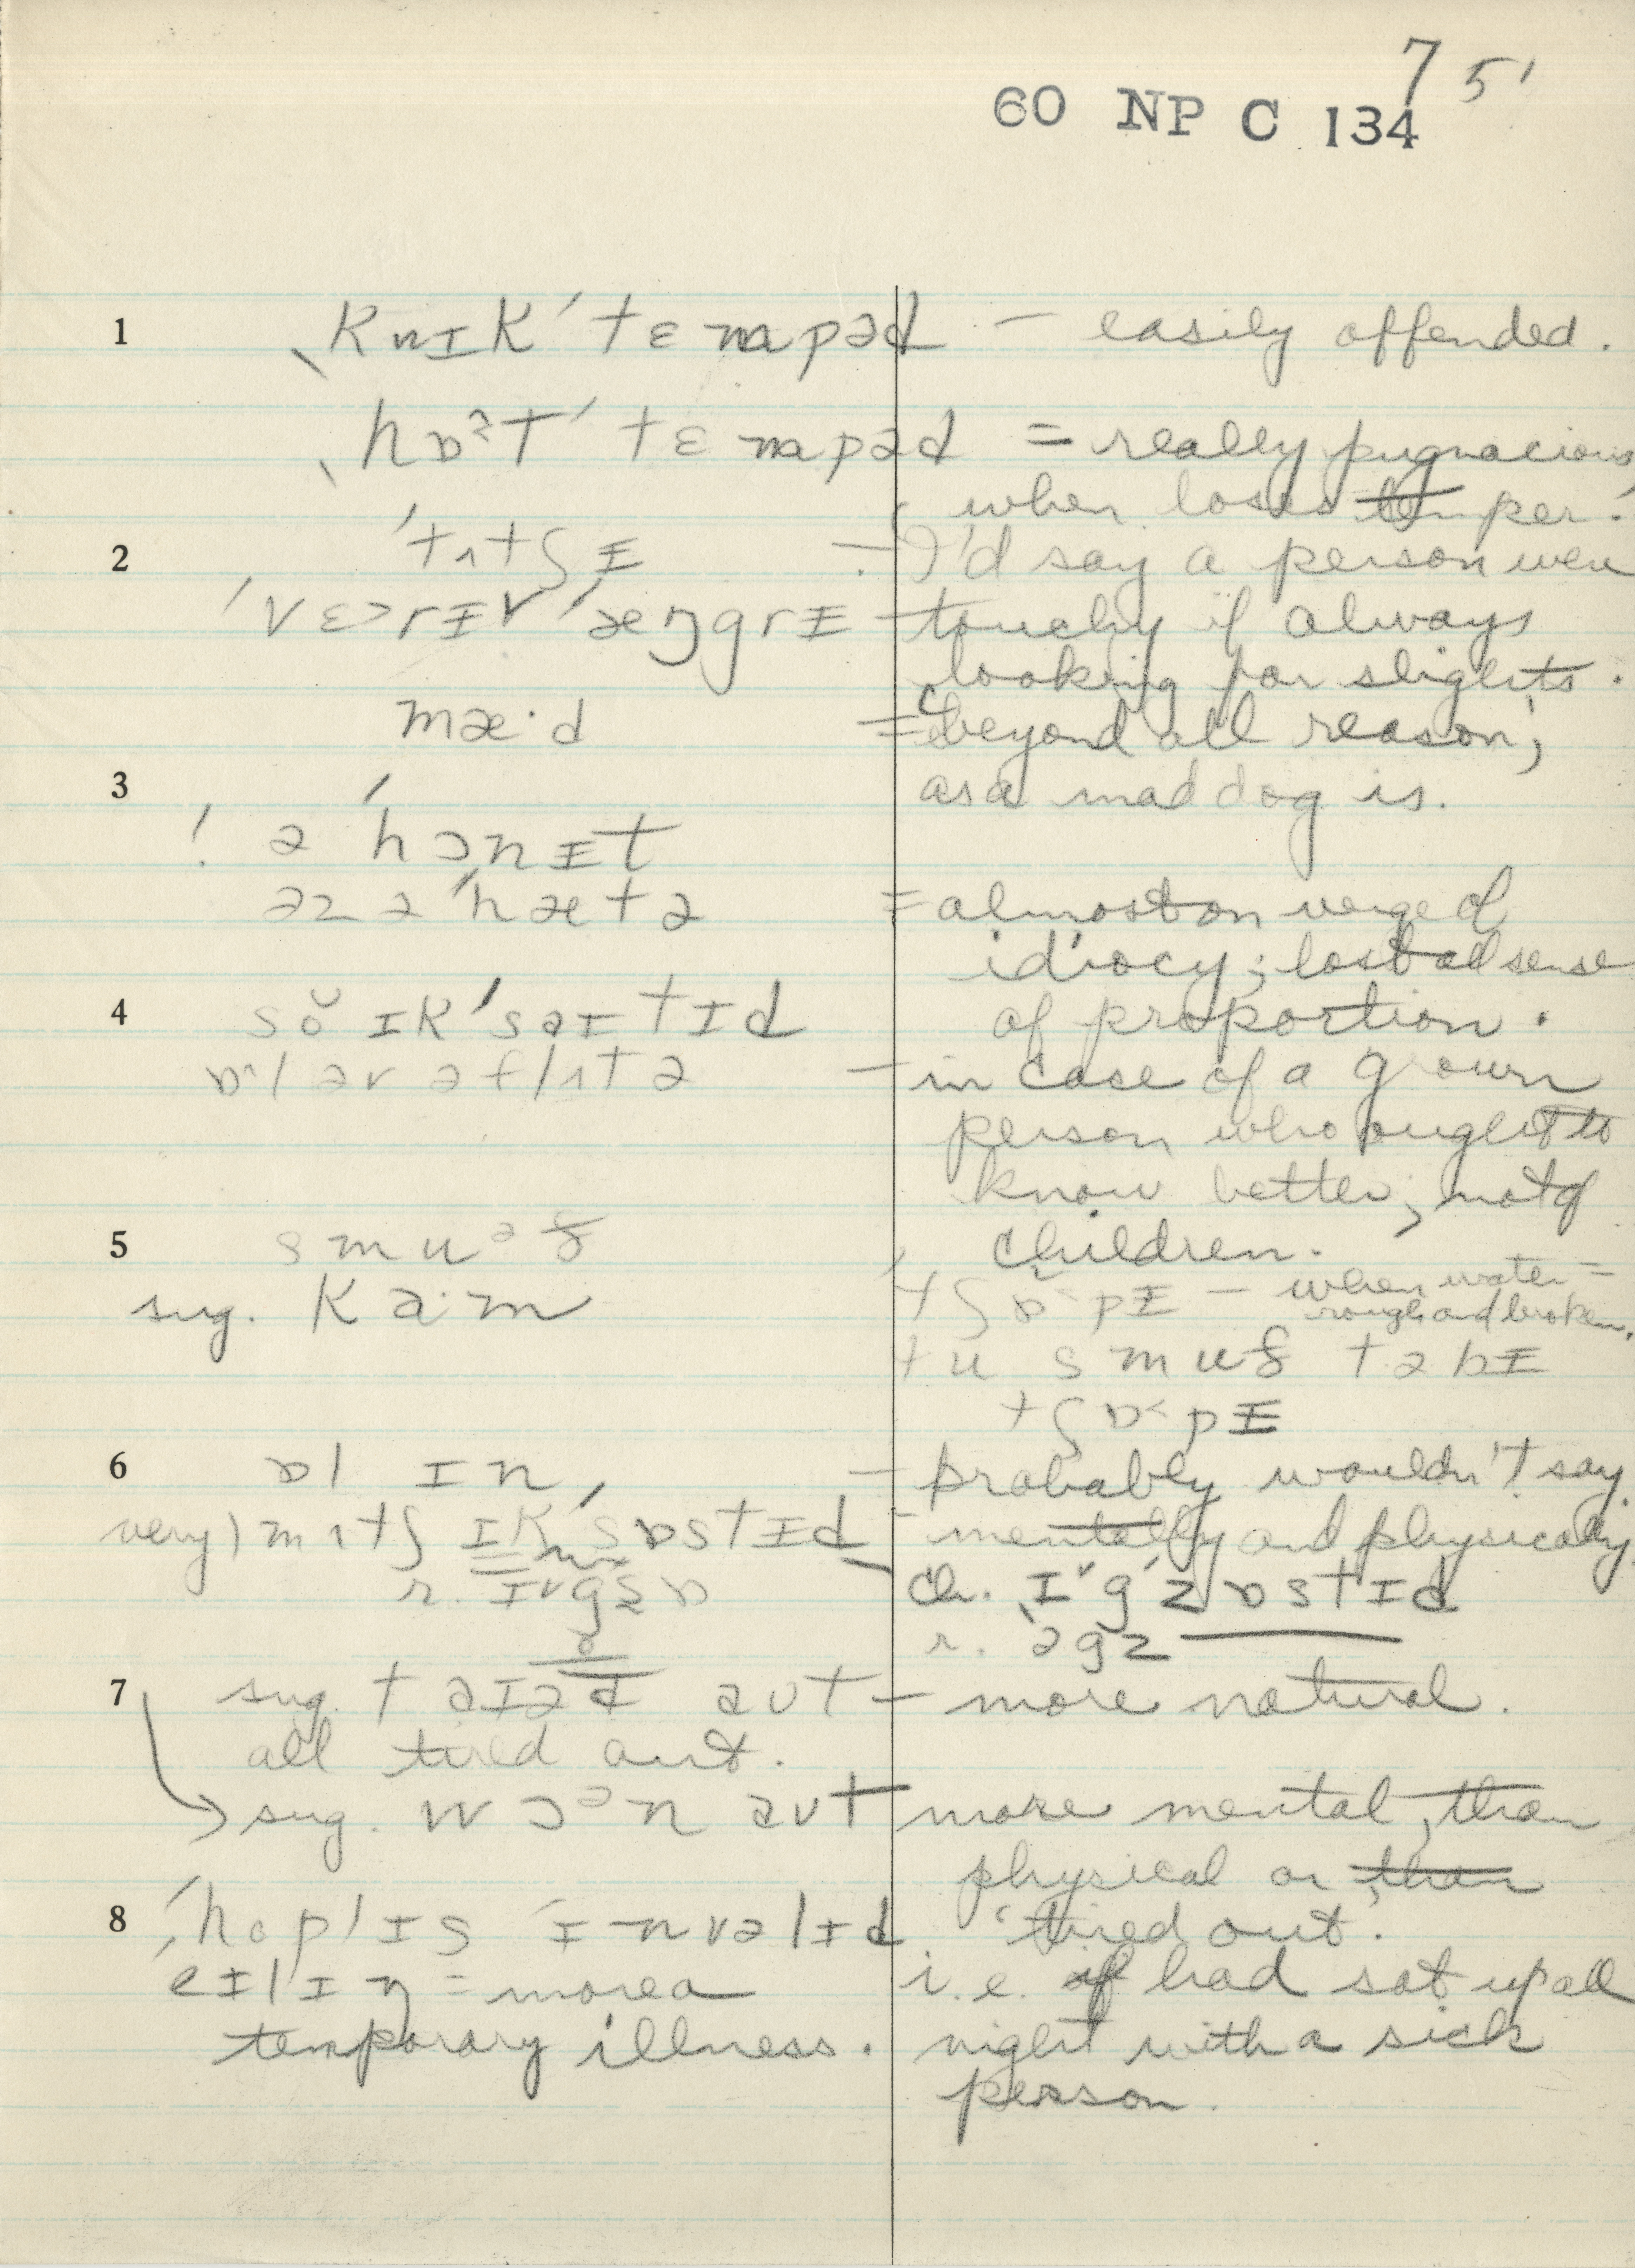 7 5'
60 NP C 134
1 ˎKwɪK ˈtɛmpəd – easily offended.
ˎhɒˀt ˈtɛmpəd = really pugnacious
when loses temper.
2 ˈtʌtʃɪ – I'd say a person were
ˈvɛ>rɪ ˈæŋgrɪ touchy if always
looking for slights.
mæ·d = beyond all reason;
as a mad dog is.
3
! ə ˈhɔnɪt
əz ə ˈhætə = almost on verge of
idiocy; lost all sense
4 sŏ ɪKˈsaɪtɪd of proportion.
ɒ·l əv ə flʌtə – in case of a grown
person who ought to
know better; not of
5 smuᵊð children.
sug. Ka·m ˈtʃɒ pɪ – when water =
rough and broken.
tu smuð tə bɪ
tʃɒ˂pɪ
6 ɒl ɪn, – probably wouldn't say.
very) mʌtʃ ɪKˈsɒstɪd – mentally and physically
r. ɪᵛgzɒ ch. ɪᵛgˈzɒstɪd
r. əgz
7 sug. taɪəd aʊt – more natural.
all tired out.
→ sug. wɔᵊn aʊt more mental, than
physical or than
8 ˈhopləs ˈɪnvəlɪd 'tired out'.
eɪlɪŋ = more a i.e. if had sat up all
temporary illness. night with a sick
person.